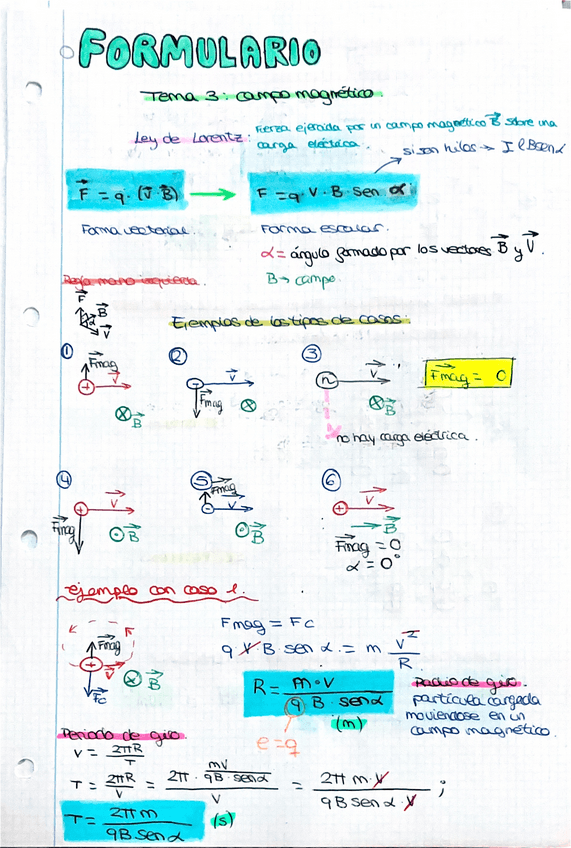 FORMULARIO
Tema 3: campo magnético.
Ley de Lorentz: Fuerza ejercida por un campo magnético B⃗ sobre una
carga eléctrica.
si son hilos → I l B sen α
F⃗ = q · (V⃗ · B⃗) → F = q · V · B · sen α
Forma vectorial. Forma escalar.
α = ángulo formado por los vectores B⃗ y V⃗.
Regla mano izquierda. B → campo.
F⃗
B⃗
α
V⃗
Ejemplos de los tipos de casos:
① F⃗mag + V⃗ ⊗ B⃗
② - V⃗ F⃗mag ⊗
③ n V⃗ ⊗ B⃗
F⃗mag = 0
no hay carga eléctrica.
④ + V⃗ F⃗mag ⊙ B⃗
⑤ F⃗mag - V⃗ ⊙ B⃗
⑥ + V⃗ → B⃗
F⃗mag = 0
α = 0°
ejemplo con caso 1.
F⃗mag + V⃗ ⊗ B⃗ F⃗c
Fmag = Fc
q V B sen α = m V²/R
R = m·V / q B · sen α
(m)
e = q
Radio de giro
partícula cargada
moviéndose en un
campo magnético.
Periodo de giro
V = 2πR/T
T = 2πR/V = 2π · (mV / qB · sen α) / V = 2π m · V / qB sen α · V ;
T = 2π m / qB sen α (s)